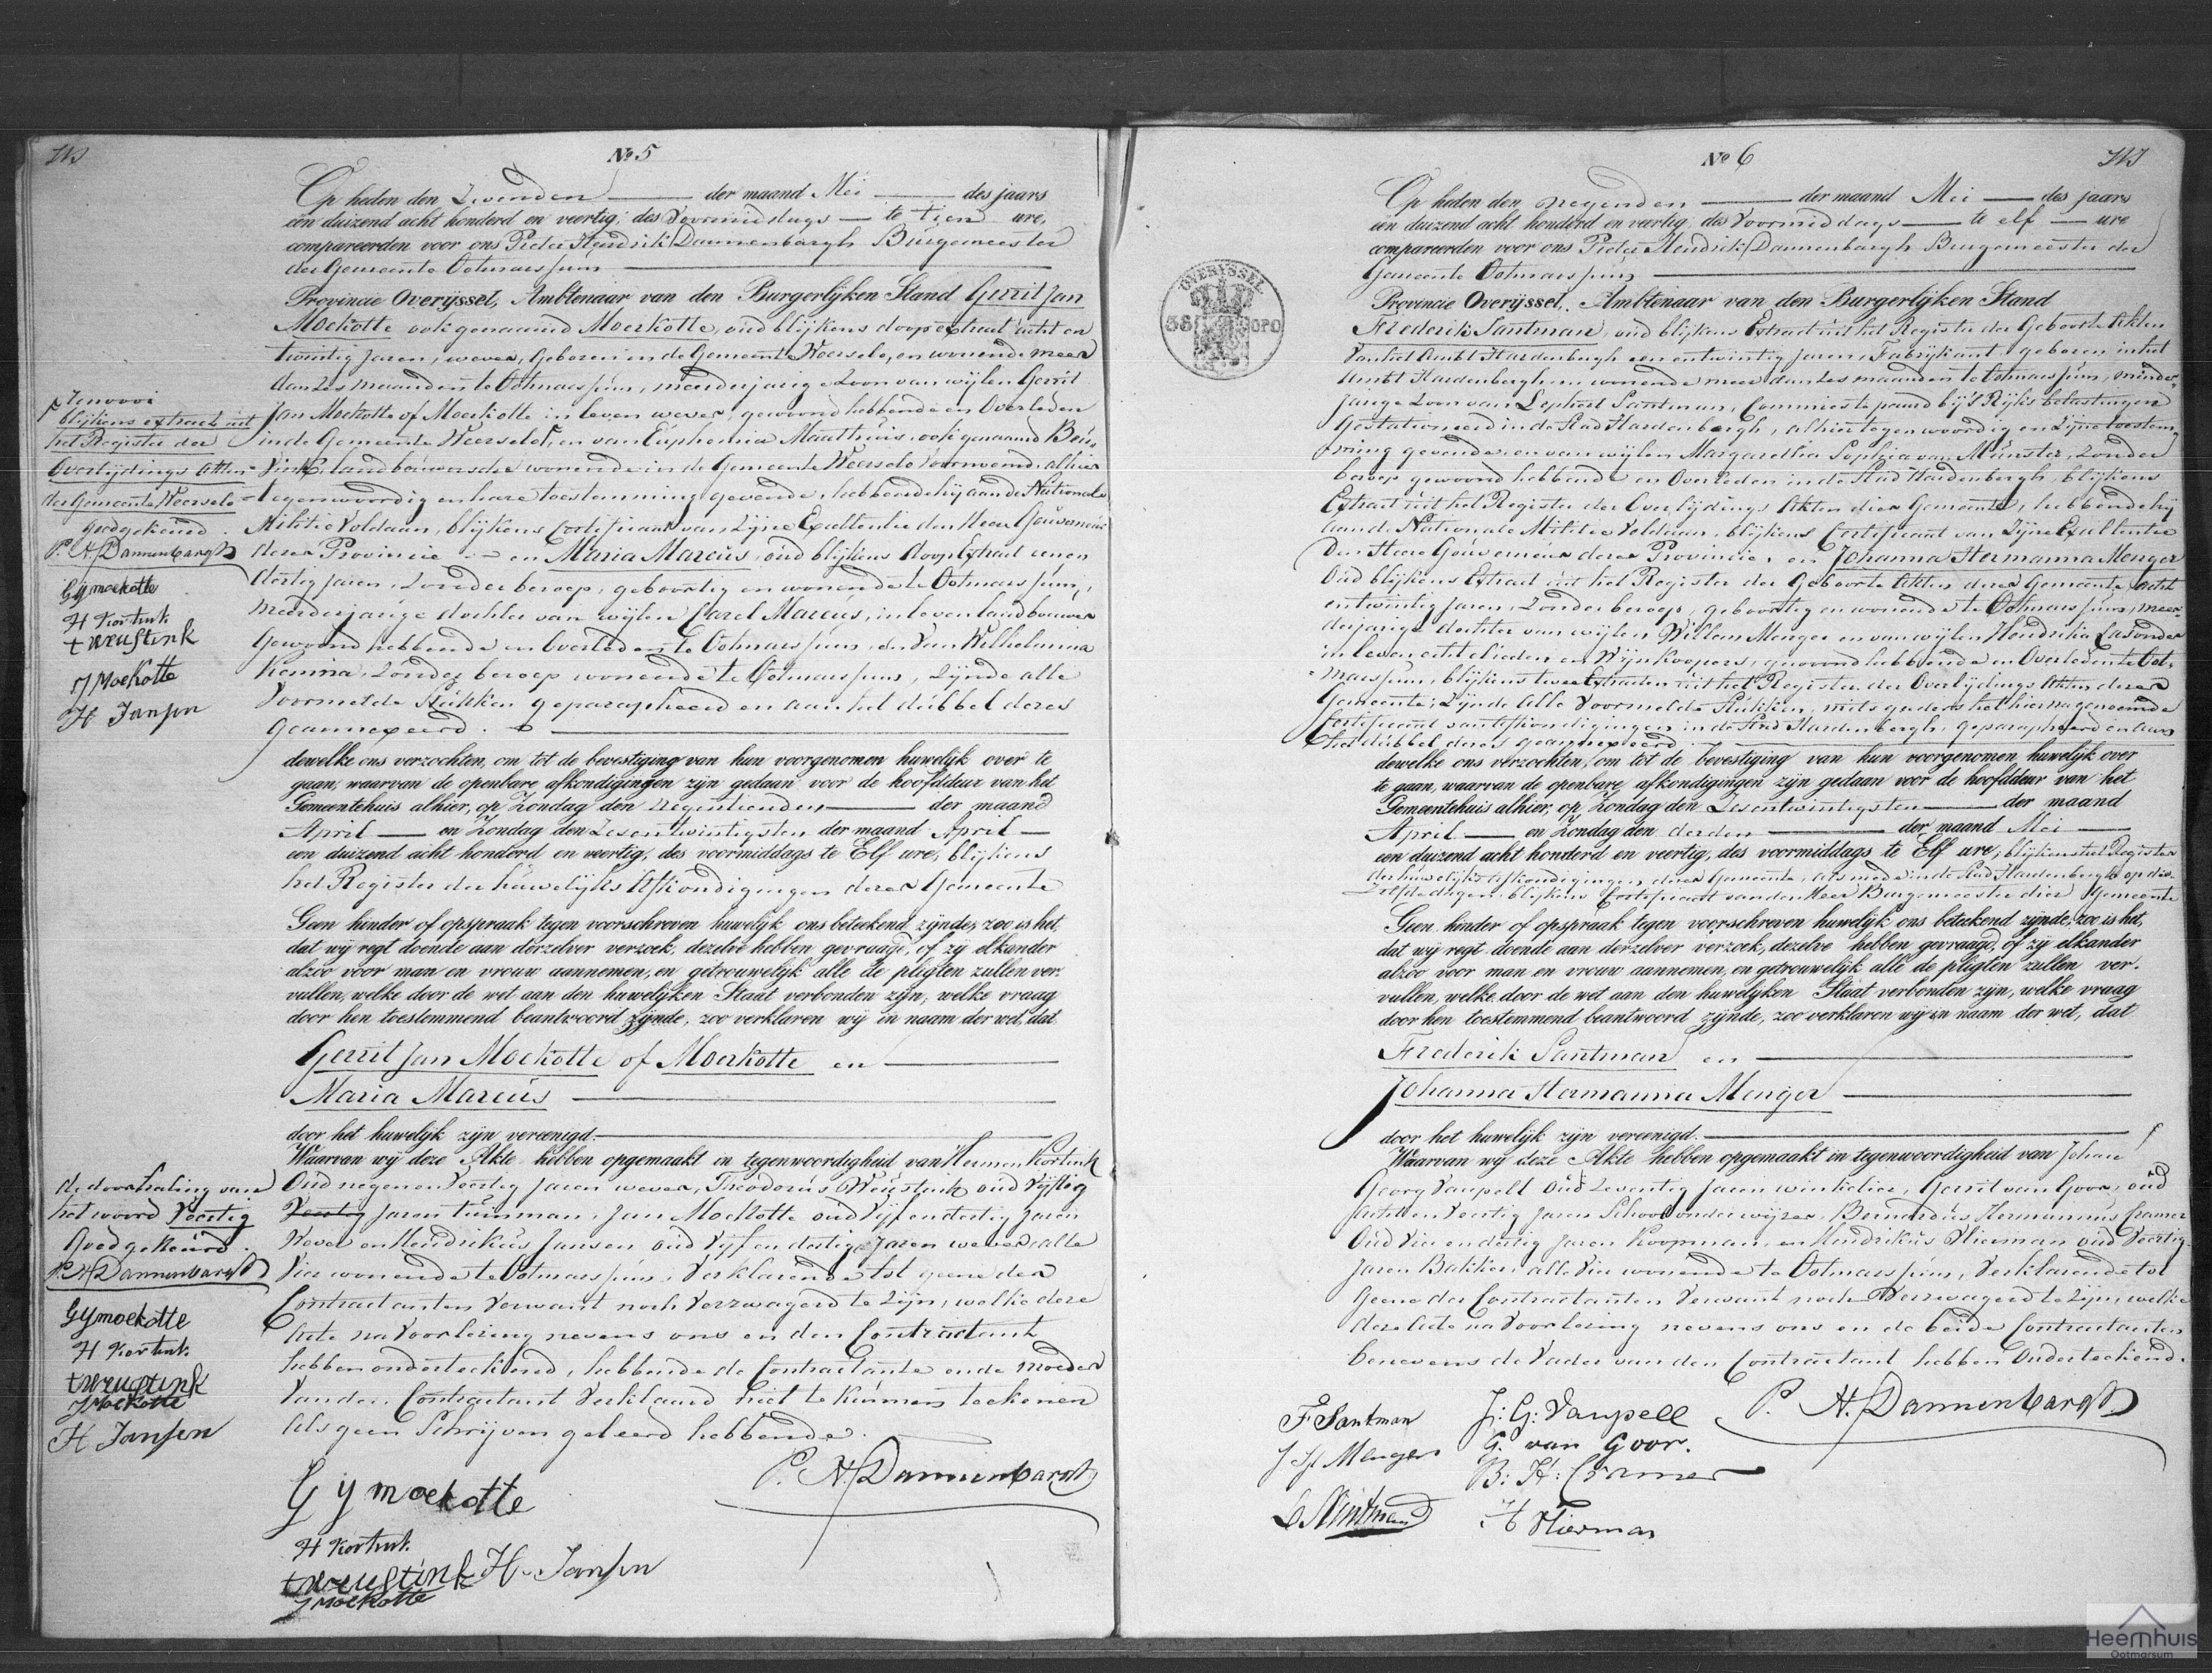 No 5
Op heden den Zevenden der maand Mei des jaars
een duizend acht honderd en veertig, des Voormiddags te tien ure,
compareerden voor ons Pieter Hendrik Dannenbargh Burgemeester
der Gemeente Ootmarssum
Provincie Overijssel, Ambtenaar van den Burgerlijken Stand Gerrit Jan
Moekotte ook genaamd Moerkotte, oud blijkens doopextract acht en
twintig jaren, wever, geboren in de Gemeente Weerselo, en wonende meer
dan zes maanden te Ootmarssum, meerderjarige Zoon van wijlen Gerrit
Jan Moekotte of Moerkotte in leven wever, gewoond hebbende en Overleden
in de Gemeente Weerselo, en van Euphemia Maathuis, ook genaamd
landbouwersche wonende in de Gemeente Weerselo voornoemd, alhier
tegenwoordig en hare toestemming gevende, hebbende hij aan de Nationale
Militie Voldaan, blijkens Certificaat van Zijne Excellentie den Heer Gouverneur
dezer Provincie en Maria Marcus, oud blijkens doop Extract eenen
dertig jaren, Zonder beroep, geboortig en wonende te Ootmarssum,
meerderjarige dochter van wijlen Carel Marcus, in leven landbouwer
Gewoond hebbende en Overleden te Ootmarssum, en Van Wilhelmina
Kemna, Zonder beroep wonende te Ootmarssum, Zijnde alle
Voormelde Stukken geparapheerd en aan het dubbel dezes
geannexeerd.
dewelke ons verzochten, om tot de bevestiging van hun voorgenomen huwelijk over te
gaan, waarvan de openbare afkondigingen zijn gedaan voor de hoofddeur van het
Gemeentehuis alhier, op Zondag den Negentienden der maand
April en Zondag den Zesentwintigsten der maand April
een duizend acht honderd en veertig, des voormiddags te Elf ure, blijkens
het Register der huwelijks Afkondigingen dezer Gemeente
Geen hinder of opspraak tegen voorschreven huwelijk ons beteekend zijnde, zoo is het,
dat wij regt doende aan derzelver verzoek, dezelve hebben gevraagd, of zij elkander
alzoo voor man en vrouw aannemen, en getrouwelijk alle de pligten zullen ver-
vullen, welke door de wet aan den huwelijken Staat verbonden zijn, welke vraag
door hen toestemmend beantwoord zijnde, zoo verklaren wij in naam der wet, dat
Gerrit Jan Moekotte of Moerkotte en
Maria Marcus
door het huwelijk zijn vereenigd.
Waarvan wij deze Akte hebben opgemaakt in tegenwoordigheid van Hermen Kortink
Oud negenenveertig Jaren wever, Theodorus Weustink oud Vijftig
Veertig Jaren tuinman, Jan Moekotte oud Vijfendertig Jaren
Wever en Hendrikus Jansen oud Vijf en dertig Jaren wever, alle
Vier wonende te Ootmarssum, Verklarende tot geene der
Contractanten Verwant noch Verzwagerd te Zijn, welke deze
Acte na Voorlezing nevens ons en den Contractant
hebben onderteekend, hebbende de Contractante en de moeder
Van den Contractant Verklaard niet te kunnen teekenen
Als geen Schrijven geleerd hebbende.
P. H. Dannenbargh
G J moekotte
H Kortink
t weustink H. Jansen
J Moekotte
Renvooi
blijkens extract uit
het Register der
Overlijdings Akten
der Gemeente Weerselo
goedgekeurd
P. H. Dannenbargh
G J moekotte
H Kortink
t weustink
J Moekotte
H Jansen
de doorhaling van
het woord Veertig
Goedgekeurd.
P. H. Dannenbargh
G J moekotte
H Kortink
t weustink
J Moekotte
H Jansen
No 6
Op heden den negenden der maand Mei des jaars
een duizend acht honderd en veertig, des Voormiddags te elf ure
compareerden voor ons Pieter Hendrik Dannenbargh Burgemeester der
Gemeente Ootmarssum
OVERIJSSEL
Provincie Overijssel, Ambtenaar van den Burgerlijken Stand
Frederik Santman, oud blijkens Extract uit het Register der Geboorte Akten
Van het Ambt Hardenbergh een en twintig jaren, Fabrijkant, geboren in het
Ambt Hardenbergh, en wonende meer dan Zes maanden te Ootmarssum, minder-
jarige Zoon van Lephert Santman, Commies te paard bij 's Rijks belastingen
Gestationeerd in de Stad Hardenbergh, alhier tegenwoordig en Zijne toestem-
ming gevende, en van wijlen Margaretha Sophia van Munster, Zonder
beroep gewoond hebbende en Overleden in de Stad Hardenbergh, blijkens
Extract uit het Register der Overlijdings Akten dier Gemeente, hebbende hij
aan de Nationale Militie Voldaan, blijkens Certificaat van Zijne Excellentie
den Heere Gouverneur dezer Provincie, en Johanna Hermanna Menger
Oud blijkens Extract uit het Register der Geboorte Akten dezer Gemeente acht
en twintig Jaren, Zonder beroep, geboortig en wonende te Ootmarssum, meer-
derjarige dochter van wijlen Willem Menger en van wijlen Hendrika
in leven echtelieden en Wijnkoopers, gewoond hebbende en Overleden te Oot-
marssum, blijkens twee Extracten uit het Register der Overlijdings Akten dezer
Gemeente; Zijnde Alle Voormelde Stukken, mitsgaders het hierna genoemde
Certificaat van Afkondigingen in de Stad Hardenbergh, geparapheerd en aan
het dubbel dezes geannexeerd.
dewelke ons verzochten, om tot de bevestiging van hun voorgenomen huwelijk over
te gaan, waarvan de openbare afkondigingen zijn gedaan voor de hoofddeur van het
Gemeentehuis alhier, op Zondag den Zesentwintigsten der maand
April en Zondag den derden der maand Mei
een duizend acht honderd en veertig, des voormiddags te Elf ure, blijkens het Register
der huwelijks Afkondigingen dezer Gemeente, als mede in de Stad Hardenbergh op die
Zelfde dagen, blijkens Certificaat van den Heer Burgemeester dier Gemeente
Geen hinder of opspraak tegen voorschreven huwelijk ons beteekend zijnde, zoo is het,
dat wij regt doende aan derzelver verzoek, dezelve hebben gevraagd, of zij elkander
alzoo voor man en vrouw aannemen, en getrouwelijk alle de pligten zullen ver-
vullen, welke door de wet aan den huwelijken Staat verbonden zijn, welke vraag
door hen toestemmend beantwoord zijnde, zoo verklaren wij in naam der wet, dat
Frederik Santman en
Johanna Hermanna Menger
door het huwelijk zijn vereenigd.
Waarvan wij deze Akte hebben opgemaakt in tegenwoordigheid van Johan
Georg Vaupell Oud Zeventig Jaren winkelier, Gerrit van Goor, oud
Achtten Veertig Jaren Schoolonderwijzer, Bernardus Hermannus Cramer
Oud Vier en dertig Jaren Koopman, en Hendrikus Stierman oud Veertig
Jaren Bakker, alle Vier wonende te Ootmarssum, Verklarende tot
Geene der Contractanten Verwant noch Verzwagerd te Zijn, welke
deze Acte na Voorlezing nevens ons en de beide Contractanten
benevens de Vader van den Contractant hebben Onderteekend.
F. Santman J: G: Vaupell P. H. Dannenbargh
J H Menger G. van Goor.
B: H: Cramer
L Santman H Stierman
Heemhuis
Ootmarsum